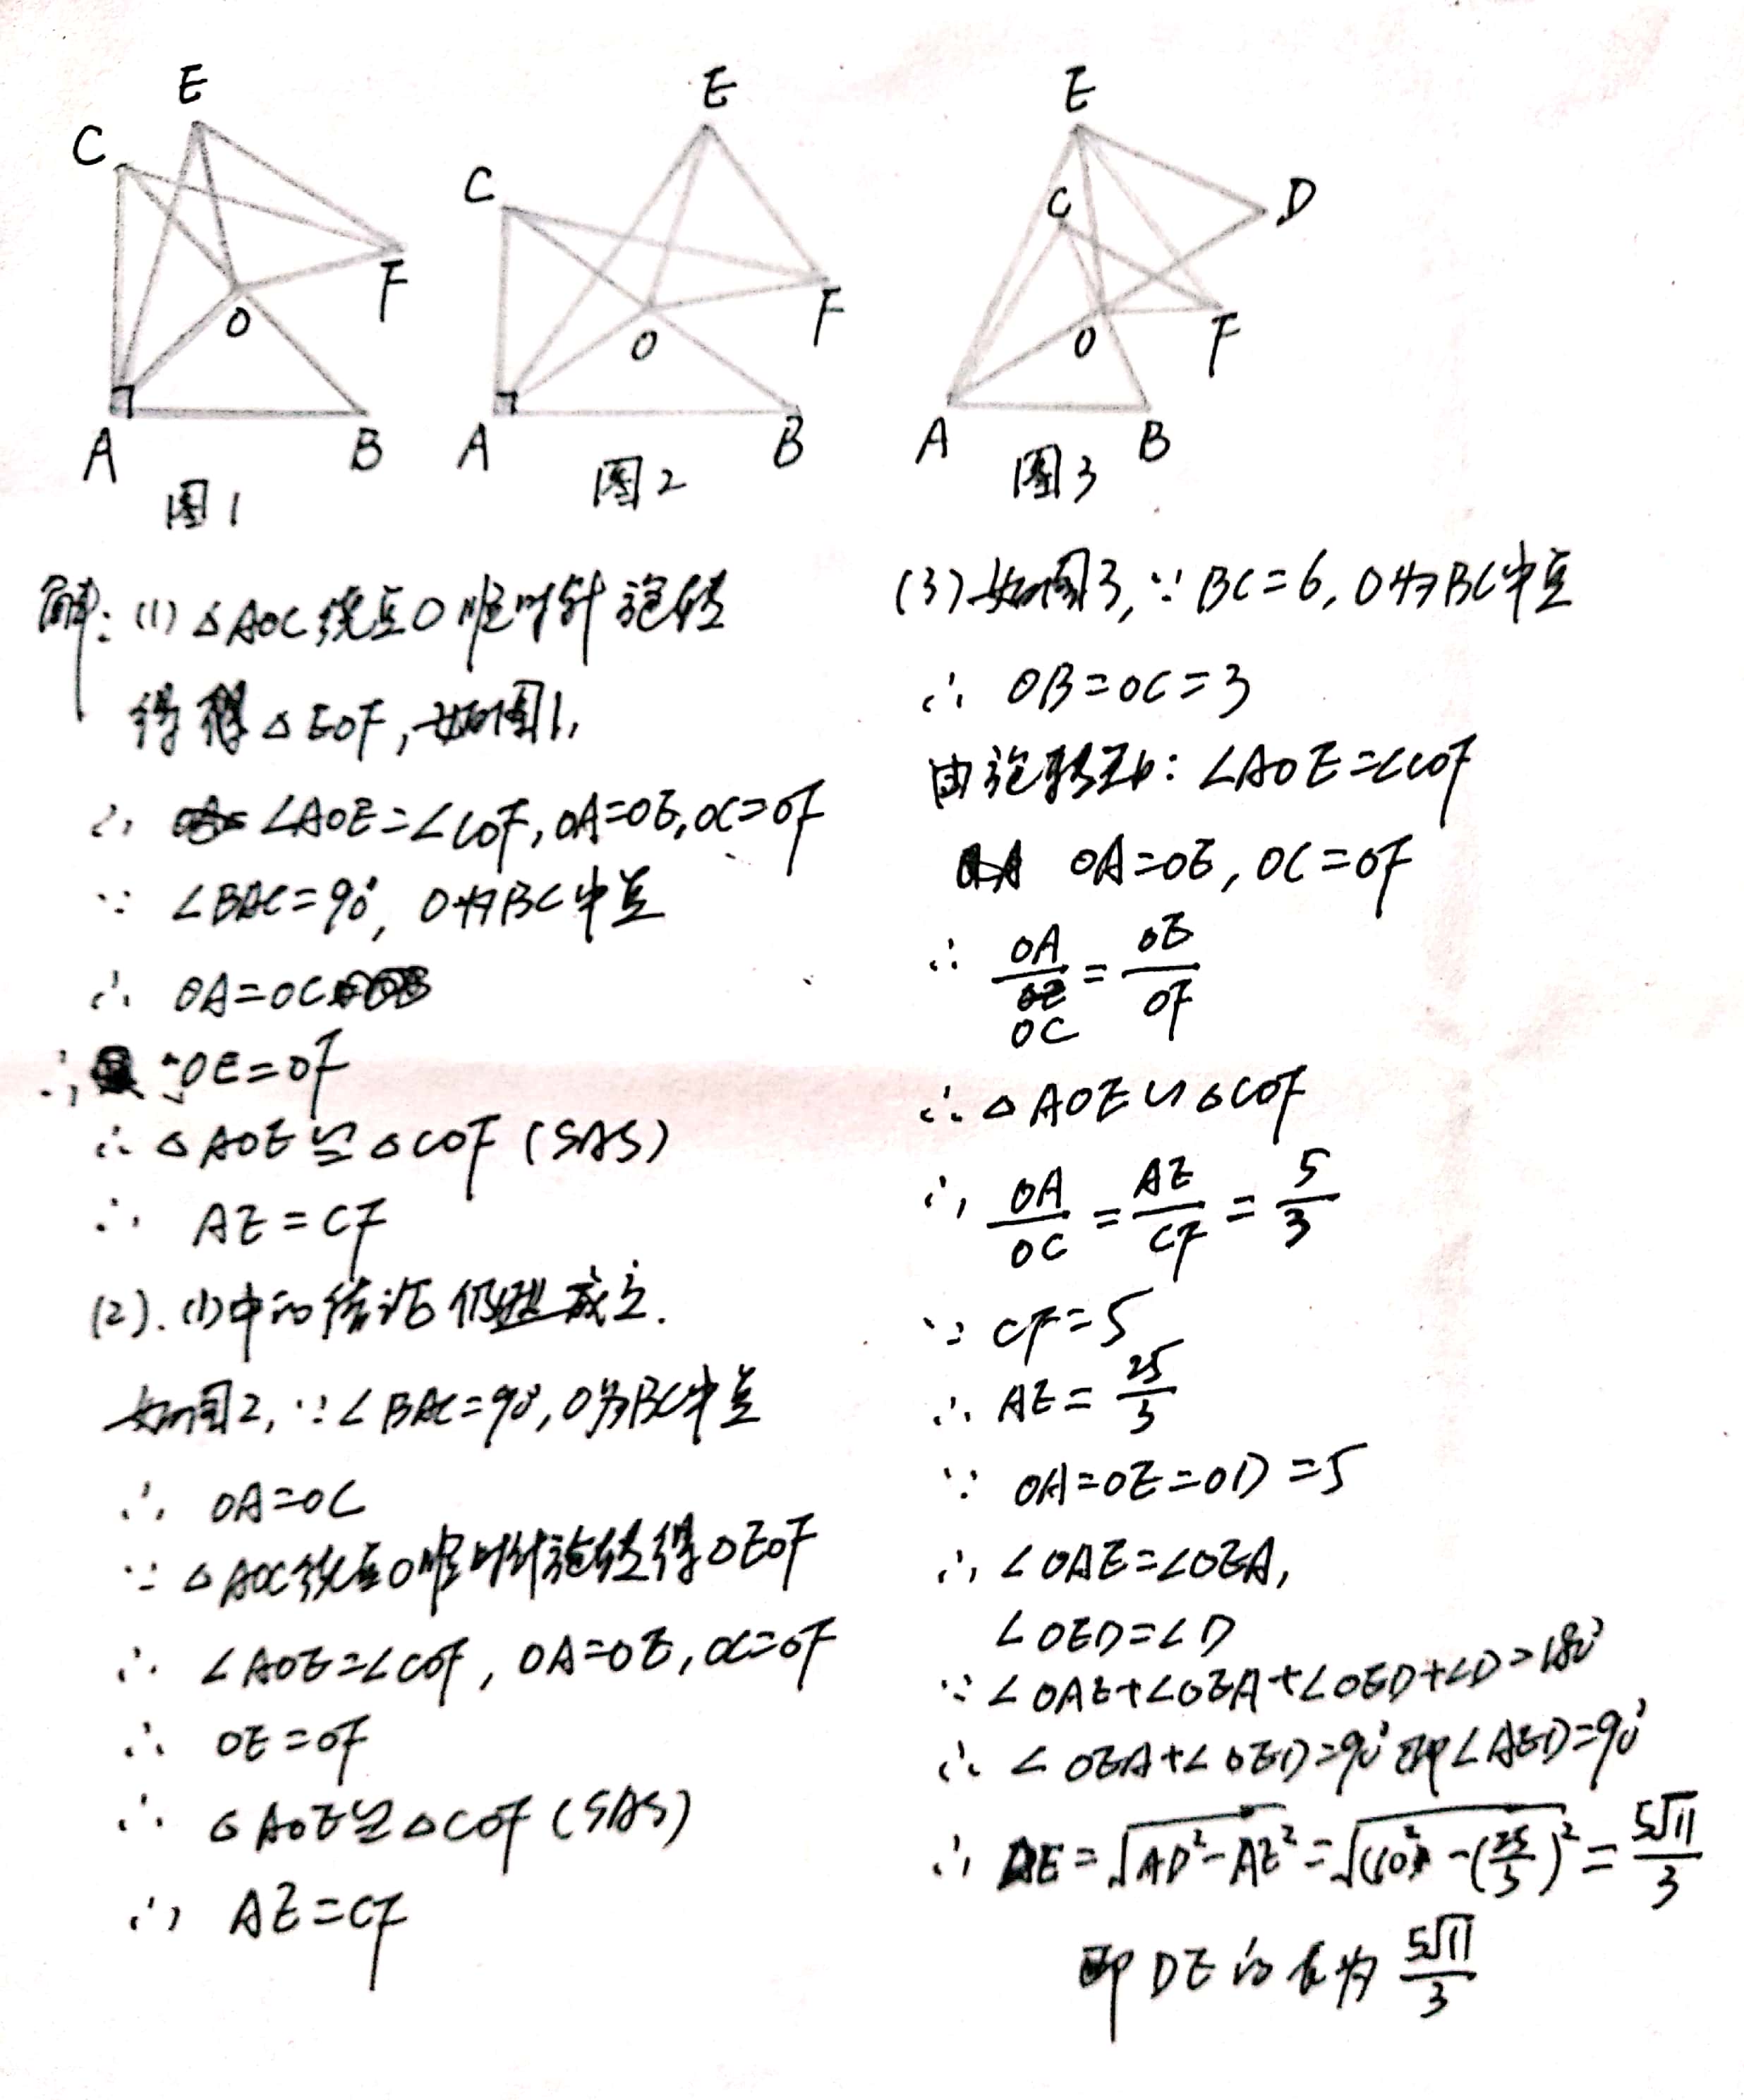 E
C
O
F
A
B
图1
E
C
O
F
A
B
图2
E
C
D
O
F
A
B
图3
解:(1)△AOC绕点O顺时针旋转
得△EOF,如图1,
∴ ∠AOE=∠COF,OA=OE,OC=OF
∵ ∠BAC=90°, O为BC中点
∴ OA=OC
∴ OE=OF
∴ △AOE≌△COF (SAS)
∴ AE=CF
(2).(1)中的结论仍然成立.
如图2,∵∠BAC=90°,O为BC中点
∴ OA=OC
∵ △AOC绕点O顺时针旋转得△EOF
∴ ∠AOE=∠COF, OA=OE,OC=OF
∴ OE=OF
∴ △AOE≌△COF (SAS)
∴ AE=CF
(3)如图3,∵ BC=6,O为BC中点
∴ OB=OC=3
由旋转知:∠AOE=∠COF
OA=OE, OC=OF
∴ OA/OC=OE/OF
∴ △AOE∽△COF
∴ OA/OC=AE/CF=5/3
∵ CF=5
∴ AE=25/3
∵ OA=OE=OD=5
∴ ∠OAE=∠OEA,
∠OED=∠D
∵ ∠OAE+∠OEA+∠OED+∠D=180°
∴ ∠OEA+∠OED=90°即∠AED=90°
∴ DE=√(AD²-AE²)=√(10²-(25/3)²)=5√11/3
即DE的长为 5√11/3